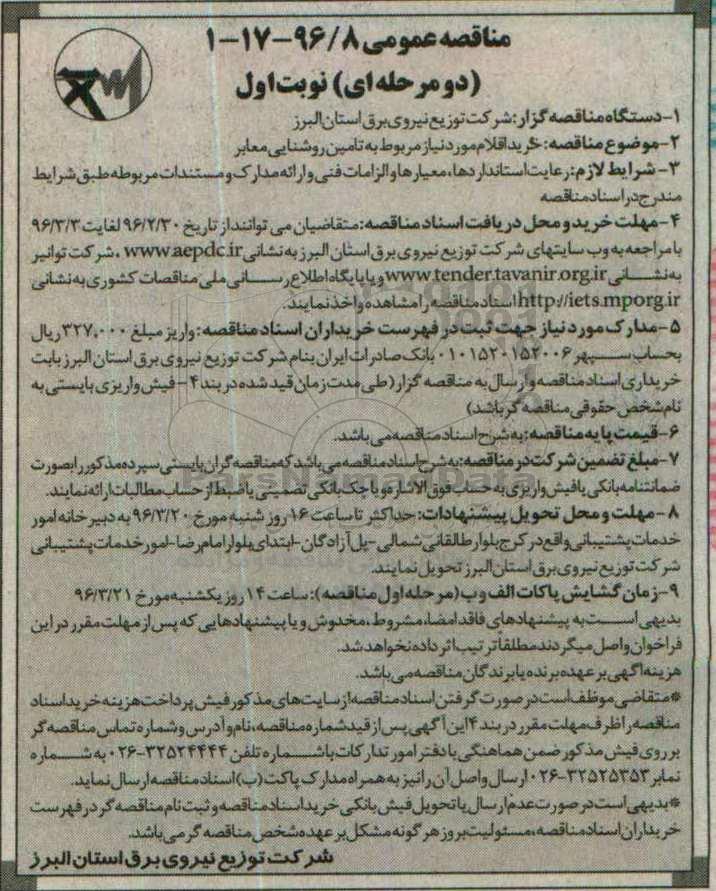 مناقصه عمومی ۹۶/۸-۱۷-۱
(دو مرحله ای) نوبت اول
۱-دستگاه مناقصه گزار: شرکت توزیع نیروی برق استان البرز
۲-موضوع مناقصه: خرید اقلام مورد نیاز مربوط به تامین روشنایی معابر
۳- شرایط لازم: رعایت استانداردها، معیارها و الزامات فنی و ارائه مدارک و مستندات مربوطه طبق شرایط
مندرج در اسناد مناقصه
۴-مهلت خرید و محل دریافت اسناد مناقصه: متقاضیان می توانند از تاریخ ۹۶/۲/۳۰ لغایت ۹۶/۳/۳
با مراجعه به وب سایتهای شرکت توزیع نیروی برق استان البرز به نشانی www.aepdc.ir ، شرکت توانیر
به نشانی www.tender.tavanir.org.ir و یا پایگاه اطلاع رسانی ملی مناقصات کشوری به نشانی
http://iets.mporg.ir اسناد مناقصه را مشاهده و اخذ نمایند.
۵-مدارک مورد نیاز جهت ثبت در فهرست خریداران اسناد مناقصه: واریز مبلغ ۳۲۷,۰۰۰ ریال
بحساب سپهر ۰۱۰۱۵۲۰۱۵۲۰۰۶ بانک صادرات ایران بنام شرکت توزیع نیروی برق استان البرز بابت
خریداری اسناد مناقصه و ارسال به مناقصه گزار (طی مدت زمان قید شده در بند ۴ - فیش واریزی بایستی به
نام شخص حقوقی مناقصه گر باشد)
۶-قیمت پایه مناقصه: به شرح اسناد مناقصه می باشد.
۷-مبلغ تضمین شرکت در مناقصه: به شرح اسناد مناقصه می باشد که مناقصه گران بایستی سپرده مذکور را بصورت
ضمانتنامه بانکی یا فیش واریزی به حساب فوق الاشاره و یا چک بانکی تضمینی یا ضبط از حساب مطالبات ارائه نمایند.
۸-مهلت و محل تحویل پیشنهادات: حداکثر تا ساعت ۱۶ روز شنبه مورخ ۹۶/۳/۲۰ به دبیرخانه امور
خدمات پشتیبانی واقع در کرج بلوار طالقانی شمالی-پل آزادگان-ابتدای بلوار امام رضا-امور خدمات پشتیبانی
شرکت توزیع نیروی برق استان البرز تحویل نمایند.
۹-زمان گشایش پاکات الف و ب (مرحله اول مناقصه): ساعت ۱۴ روز یکشنبه مورخ ۹۶/۳/۲۱
بدیهی است به پیشنهادهای فاقد امضا، مشروط، مخدوش و یا پیشنهادهایی که پس از مهلت مقرر در این
فراخوان واصل میگردند مطلقاً ترتیب اثر داده نخواهد شد.
هزینه اگهی بر عهده برنده یا برندگان مناقصه می باشد.
*متقاضی موظف است در صورت گرفتن اسناد مناقصه از سایت های مذکور فیش پرداخت هزینه خرید اسناد
مناقصه را ظرف مهلت مقرر در بند ۴ این آگهی پس از قید شماره مناقصه، نام و آدرس و شماره تماس مناقصه گر
بر روی فیش مذکور ضمن هماهنگی با دفتر امور تدارکات با شماره تلفن ۳۲۵۲۴۴۴۴-۰۲۶ به شماره
نمابر ۳۲۵۲۵۳۵۳-۰۲۶ ارسال و اصل آن را نیز به همراه مدارک پاکت (ب) اسناد مناقصه ارسال نماید.
*بدیهی است در صورت عدم ارسال یا تحویل فیش بانکی خرید اسناد مناقصه و ثبت نام مناقصه گر در فهرست
خریداران اسناد مناقصه، مسئولیت بروز هر گونه مشکل بر عهده شخص مناقصه گر می باشد.
شرکت توزیع نیروی برق استان البرز